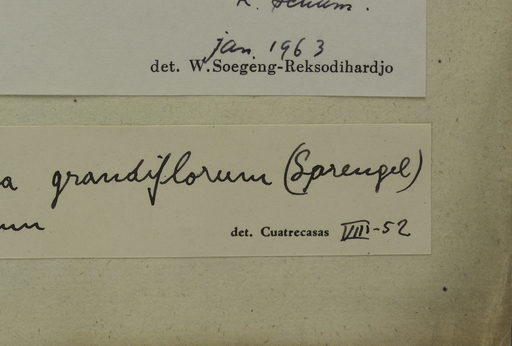 K. Schum.
jan. 1963
det. W.Soegeng-Reksodihardjo
a grandiflorum (Sprengel)
um
det. Cuatrecasas VIII-52